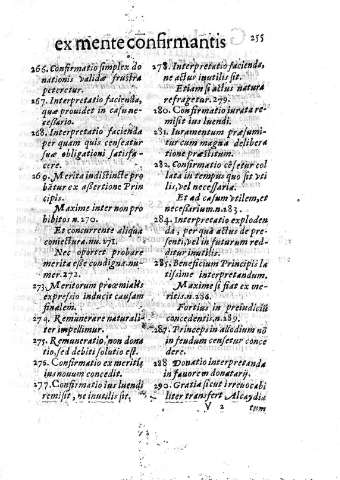 ex mente confirmantis 255
266. Confirmatio simplex do
nationis validæ frustra
peteretur.
267. Interpretatio facienda,
quæ prouidet in casu ne-
cessario.
268. Interpretatio facienda
per quam quis censeatur
suæ obligationi satisfa-
cere.
269. Merita indistincte pro
bãtur ex assertione Prin
cipis.
Maxime inter non pro
bibitos n. 270.
Et concurrente aliqua
coniectura. nu. 271.
Nec oportet probare
merita esse condigna. nu-
mer. 272.
273. Meritorum proœmialis
expressio inducit causam
finalem.
274. Remunerare naturali-
ter impellimur.
275. Remuneratio, non dona
tio, sed debiti solutio est.
276. Confirmatio ex meritis
ius nouum concedit.
277. Confirmatio ius luendi
remisit, ne inutilis sit,
278. Interpretatio facienda,
ne actus inutilis sit.
Etiam si actus natura
refragetur. 279.
280. Confirmatio iurata re-
misit ius luendi.
281. Iuramentum præsumi-
tur cum magna delibera
tione præstitum.
282. Confirmatio cẽsetur cõ
lata in tempus quo sit vti
lis, vel necessaria.
Et ad casum vtilem, et
necessarium. n. 283.
284. Interpretatio exploden
da, per quã actus de præ-
senti, vel in futurum red-
ditur inutilis.
285. Beneficium Principis la
tissime interpretandum.
Maxime si fiat ex me-
ritis. n. 286.
Fortius in preiudiciũ
concedentis. n. 289.
287. Princeps in allodium nõ
in feudum censetur conce
dere.
288 Donatio interpretanda
in fauorem donatarij.
290. Gratia sicut irreuocabi
liter transfert Alcaydia
V 2 tum